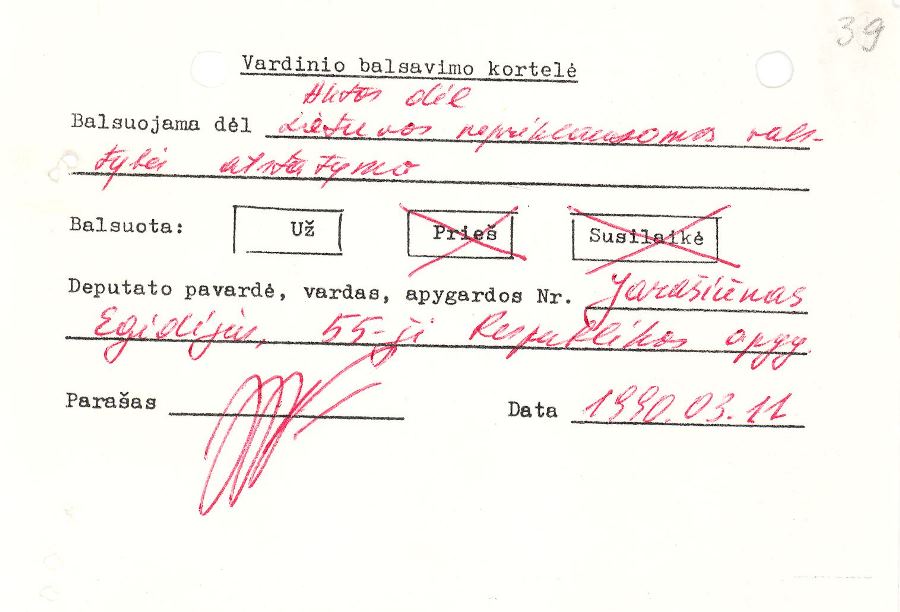 39
Vardinio balsavimo kortelė
Aktos dėl
Balsuojama dėl Lietuvos nepriklausomos vals-
tybės atstatymo
Balsuota: Už Prieš Susilaikė
Deputato pavardė, vardas, apygardos Nr. Jarašiūnas
Egidijus, 55-ji Respublikos apyg.
Parašas Data 1990.03.11